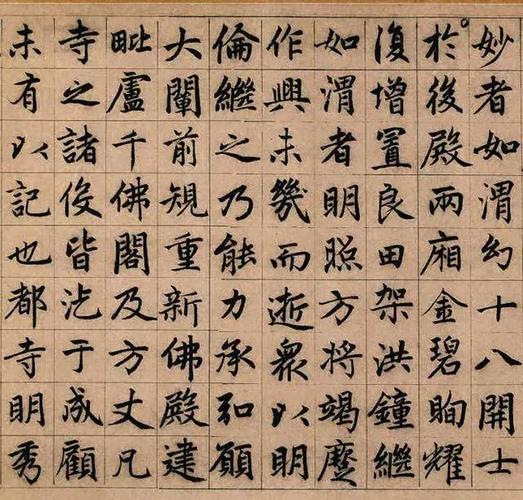 妙者如渭幻十八開士
於後殿兩廂金碧眴耀
復增置良田架洪鐘繼
如渭者明照方將竭蹷
作興未幾而逝衆以明
倫繼之乃能力承弘願
大闡前規重新佛殿建
毗盧千佛閣及方丈凡
寺之諸伇皆汔于成顧
未有以記也都寺明秀